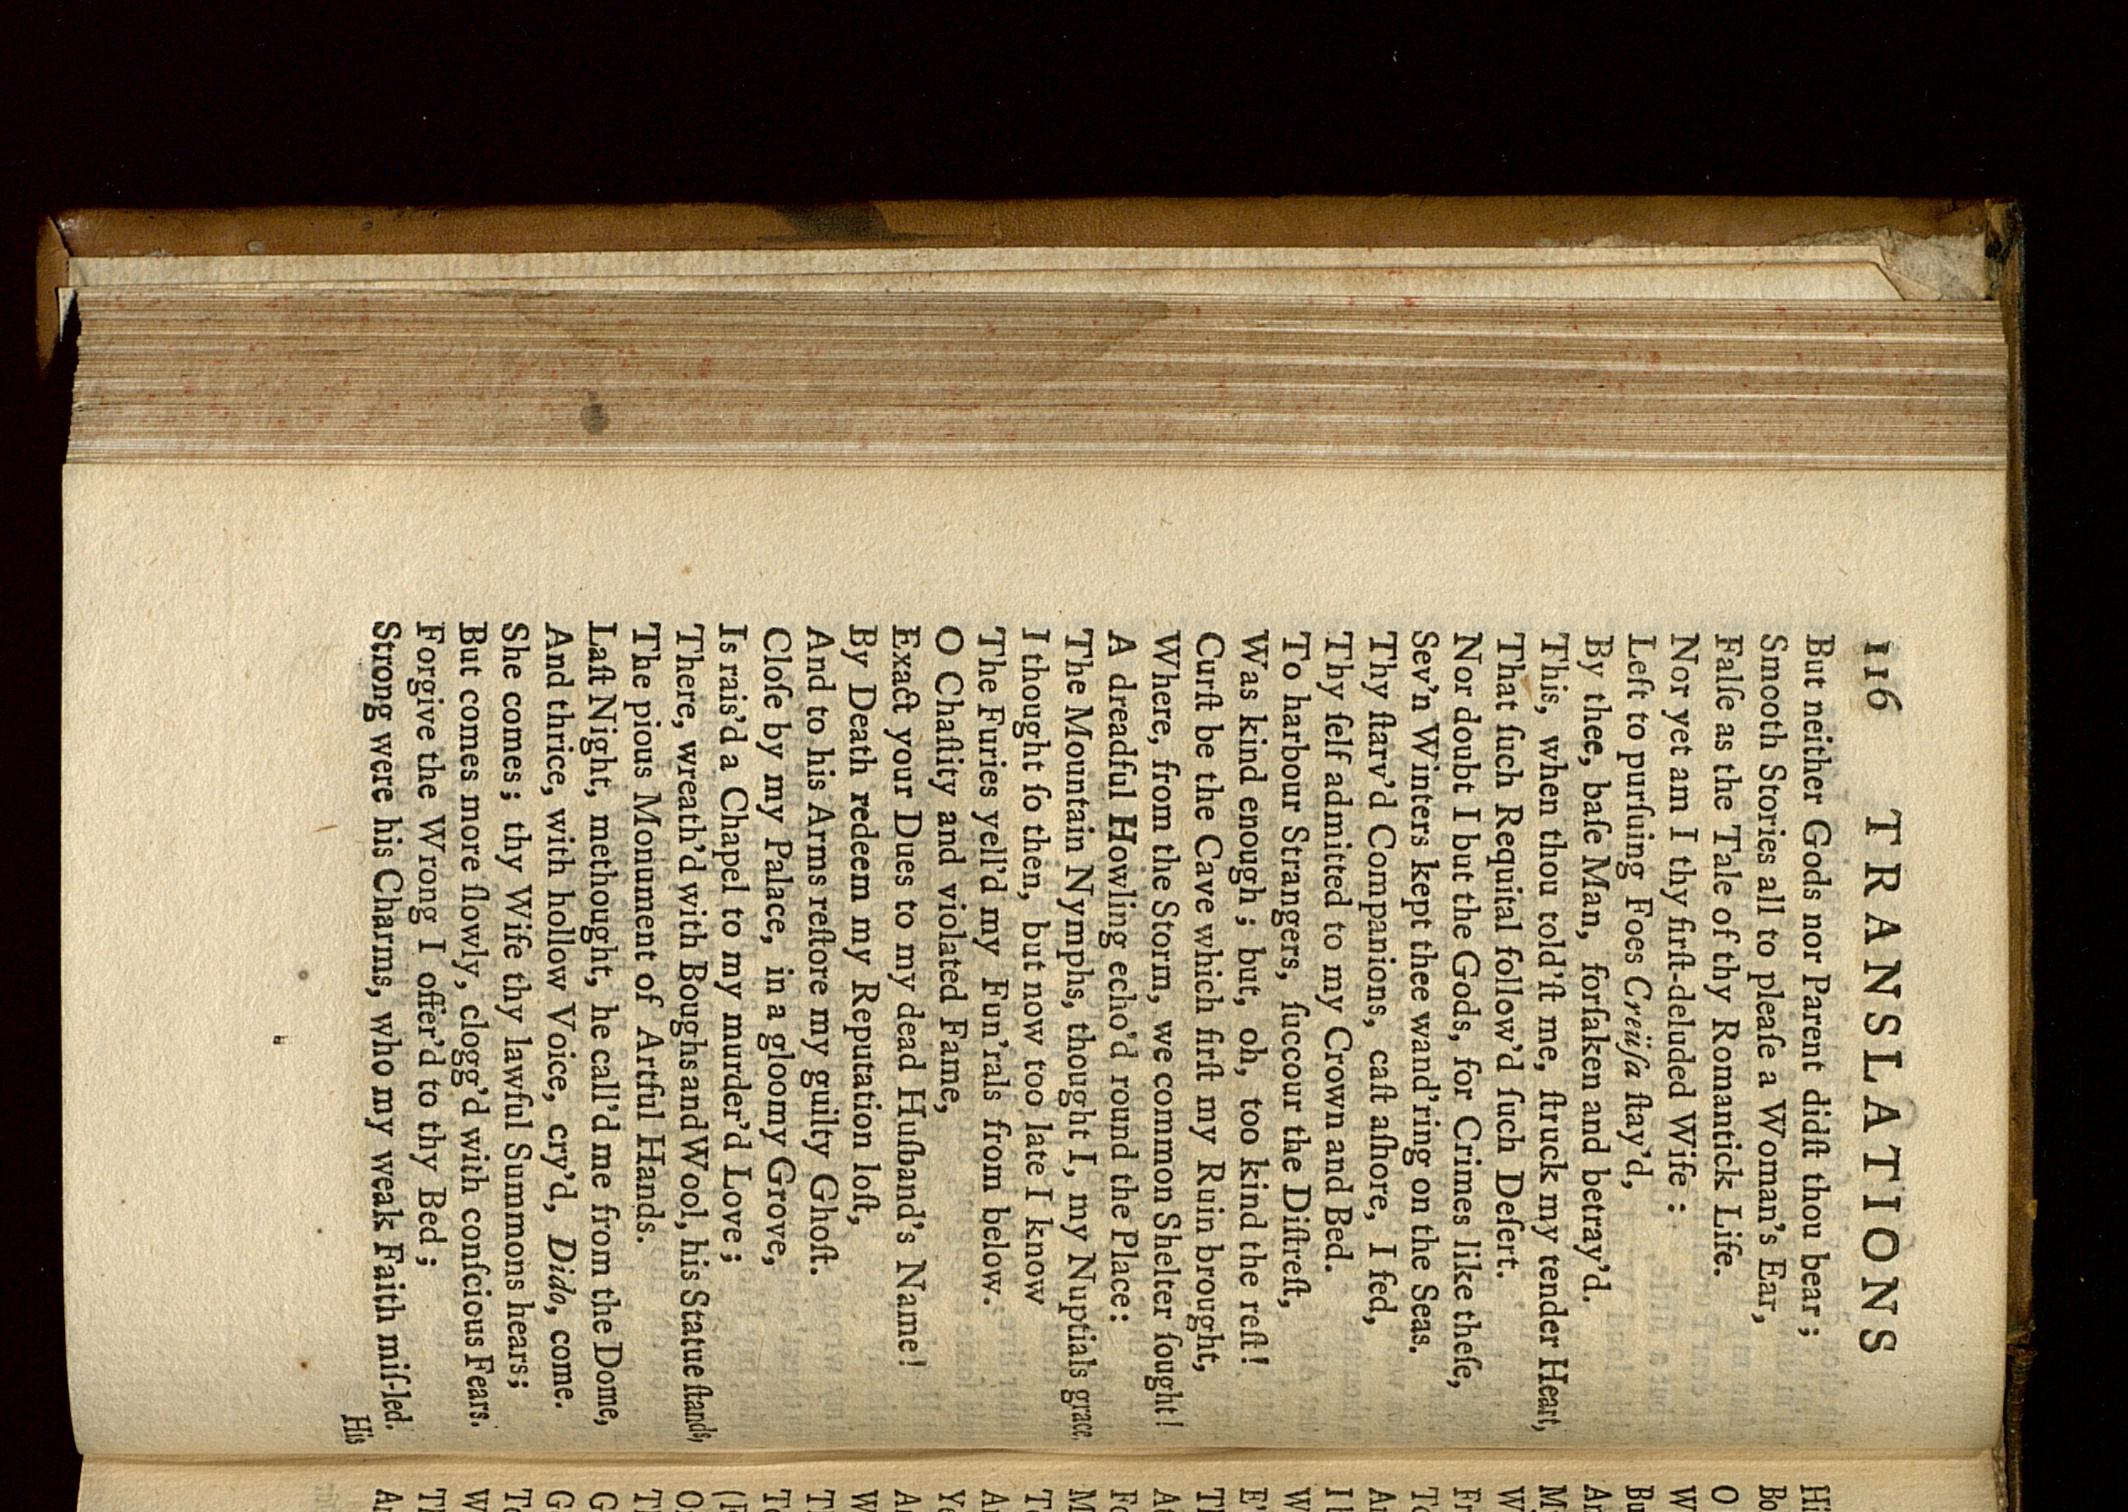 116 TRANSLATIONS
But neither Gods nor Parent didſt thou bear;
Smooth Stories all to pleaſe a Woman's Ear,
Falſe as the Tale of thy Romantick Life.
Nor yet am I thy firſt-deluded Wife:
Left to purſuing Foes Creüſa ſtay'd,
By thee, baſe Man, forſaken and betray'd.
This, when thou told'ſt me, ſtruck my tender Heart,
That ſuch Requital follow'd ſuch Deſert.
Nor doubt I but the Gods, for Crimes like theſe,
Sev'n Winters kept thee wand'ring on the Seas.
Thy ſtarv'd Companions, caſt aſhore, I fed,
Thy ſelf admitted to my Crown and Bed.
To harbour Strangers, ſuccour the Diſtreſt,
Was kind enough; but, oh, too kind the reſt!
Curſt be the Cave which firſt my Ruin brought,
Where, from the Storm, we common Shelter ſought!
A dreadful Howling echo'd round the Place:
The Mountain Nymphs, thought I, my Nuptials grace.
I thought ſo then, but now too late I know
The Furies yell'd my Fun'rals from below.
O Chaſtity and violated Fame,
Exact your Dues to my dead Huſband's Name!
By Death redeem my Reputation loſt,
And to his Arms reſtore my guilty Ghoſt.
Cloſe by my Palace, in a gloomy Grove,
Is rais'd a Chapel to my murder'd Love;
There, wreath'd with Boughs and Wool, his Statue ſtands,
The pious Monument of Artful Hands.
Laſt Night, methought, he call'd me from the Dome,
And thrice, with hollow Voice, cry'd, Dido, come.
She comes; thy Wife thy lawful Summons hears;
But comes more ſlowly, clogg'd with conſcious Fears.
Forgive the Wrong I offer'd to thy Bed;
Strong were his Charms, who my weak Faith miſ-led.
His